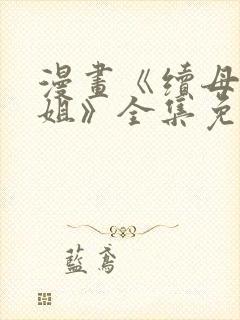 漫畫《續母
姐》全集免
藍鳶